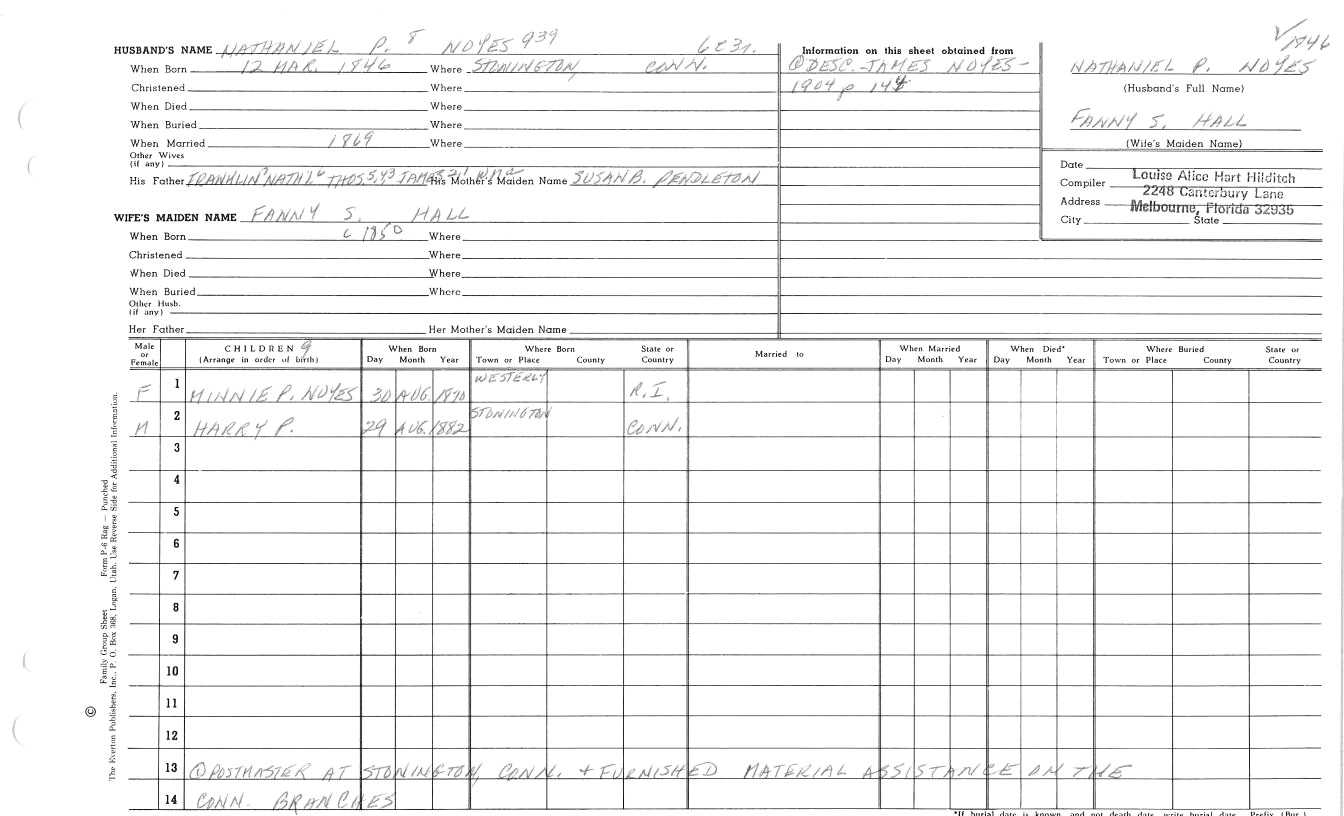 √1846
HUSBAND'S NAME NATHANIEL P. 8 NOYES 939
Information on this sheet obtained from
When Born 12 MAR. 1846 Where STONINGTON, CONN.
① DESC. JAMES NOYES -
NATHANIEL P. NOYES
Christened Where
1904 p 144
(Husband's Full Name)
When Died Where
When Buried Where
FANNY S. HALL
When Married 1869 Where
(Wife's Maiden Name)
Other Wives
(if any)
Date
His Father FRANKLIN 7 NATH'L 6 THOS 5,4,3 JAMES His Mother's Maiden Name SUSAN B. PENDLETON
Compiler Louise Alice Hart Hilditch
Address 2248 Canterbury Lane
Melbourne, Florida 32935
City State
WIFE'S MAIDEN NAME FANNY S. HALL
When Born c 1850 Where
Christened Where
When Died Where
When Buried Where
Other Husb.
(if any)
Her Father Her Mother's Maiden Name
Male or Female CHILDREN 9 (Arrange in order of birth) When Born Day Month Year Where Born Town or Place County State or Country Married to When Married Day Month Year When Died* Day Month Year Where Buried Town or Place County State or Country
F 1 MINNIE P. NOYES 30 AUG. 1870 WESTERLY R.I.
M 2 HARRY P. 29 AUG. 1882 STONINGTON CONN.
3
4
5
6
7
8
9
10
11
12
13 ① POSTMASTER AT STONINGTON, CONN. + FURNISHED MATERIAL ASSISTANCE ON THE
14 CONN. BRANCHES
*If burial date is known and not death date, write burial date. Prefix (Bur.)
© Family Group Sheet Form P-6 Rag — Punched
The Everton Publishers, Inc., P. O. Box 368, Logan, Utah. Use Reverse Side for Additional Information.